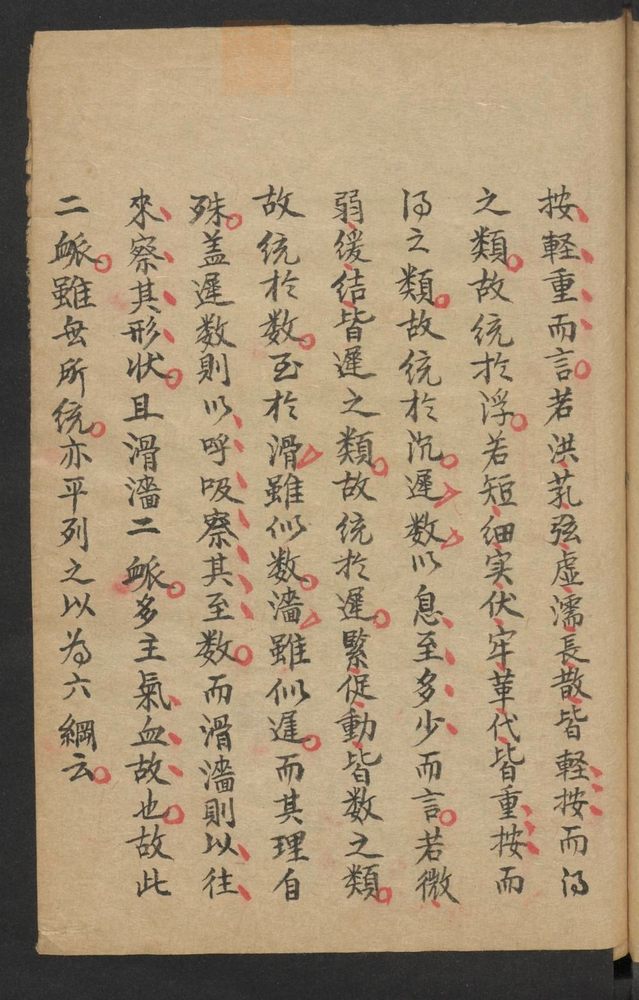 按軽重而言若洪芤弦虛濡長散皆軽按而淂
之類故統於浮若短細実伏牢革代皆重按而
淂之類故統於沉遲数以息至多少而言若微
弱緩結皆遲之類故統於遲緊促動皆数之類
故統於数至於滑雖似数濇雖似遲而其理自
殊盖遲数則以呼吸察其至数而滑濇則以往
來察其形狀且滑濇二脈多主氣血故也故此
二脈雖無所統亦平列之以為六綱云